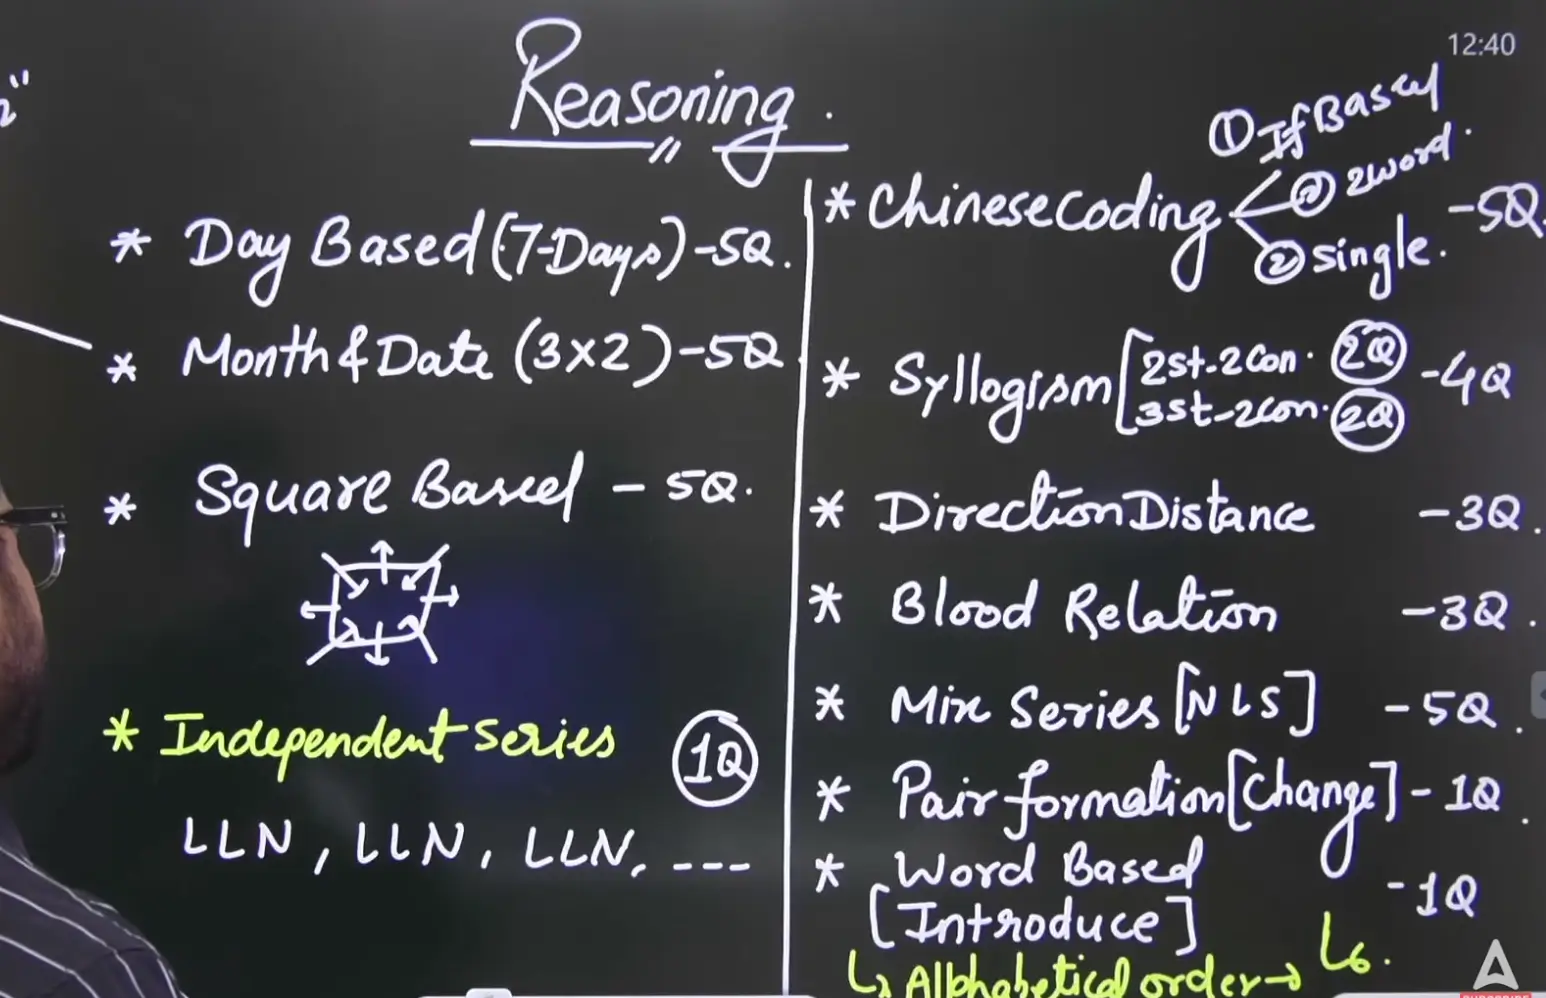 12:40
Reasoning.
* Day Based (7-Days) - 5Q.
* Month & Date (3×2) - 5Q
* Square Based - 5Q.
* Independent Series 1Q
LLN, LLN, LLN, ---
* Chinese Coding - 5Q.
① If Based
② 2word.
② single.
* Syllogism [ - 4Q
2st-2con. 2Q
3st-2con. 2Q
* Direction Distance - 3Q.
* Blood Relation - 3Q.
* Mix Series [NLS] - 5Q.
* Pair formation [Change] - 1Q.
* Word Based - 1Q
[Introduce]
↳ Alphabetical order →
SUBSCRIBE